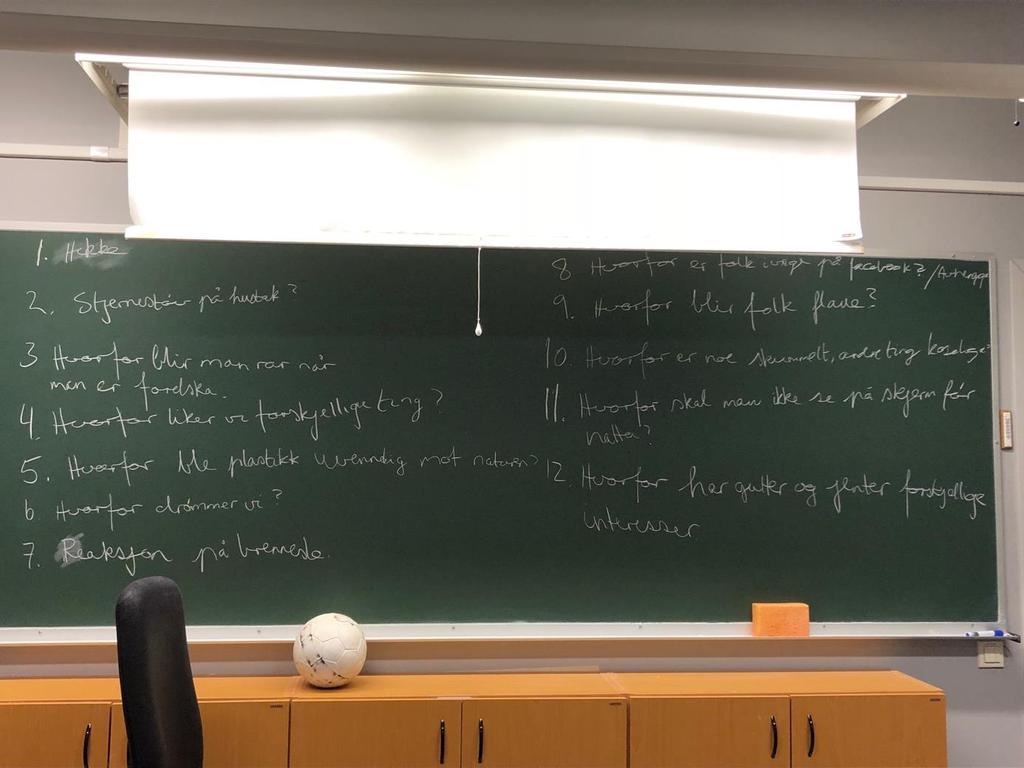 1. Hikke
2. Stjernestøv på hustak?
3 Hvorfor blir man rar når
man er forelska.
4. Hvorfor liker vi forskjellige ting?
5. Hvorfor ble plastikk uvenndig mot naturen?
6 Hvorfor drømmer vi?
7. Reaksjon på brennesle.
8 Hvorfor er folk ivrige på facebook?
9. Hvorfor blir folk flaue?
10. Hvorfor er noe skummelt, andre ting koselige?
11. Hvorfor skal man ikke se på skjerm før
natta?
12. Hvorfor har gutter og jenter forskjellige
interesser